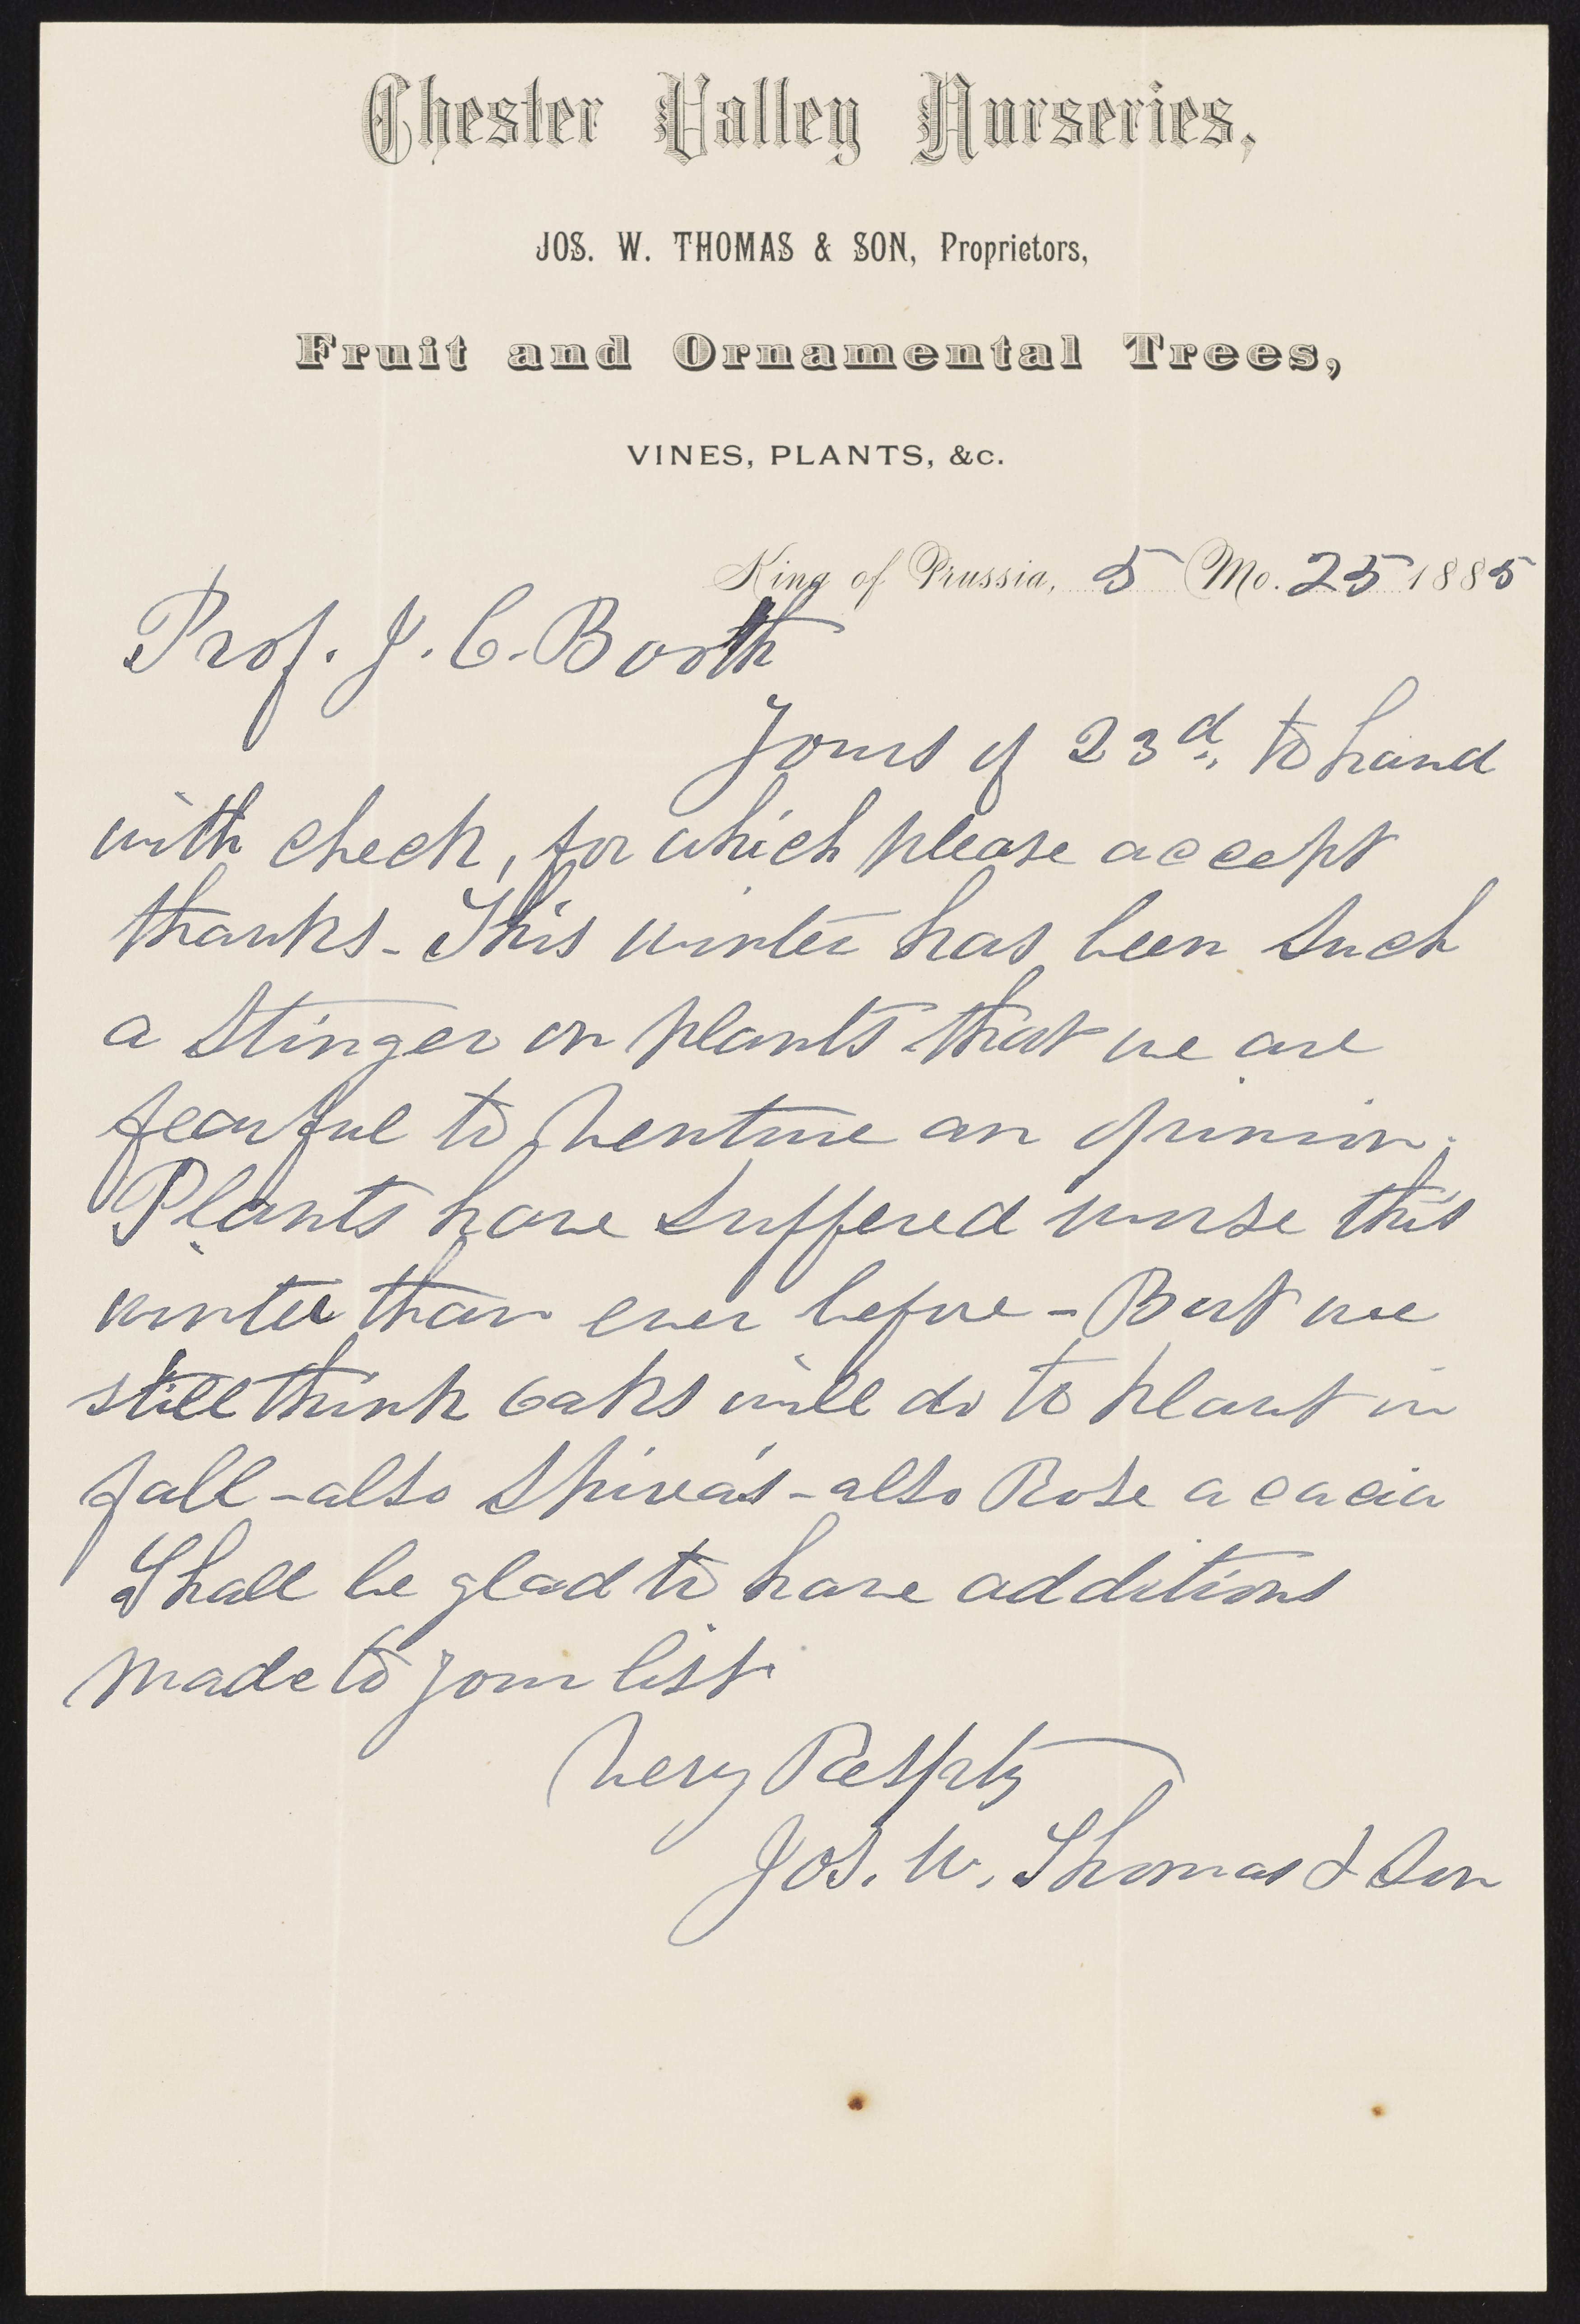 Chester Valley Nurseries,
JOS. W. THOMAS & SON, Proprietors,
Fruit and Ornamental Trees,
VINES, PLANTS, &c.
King of Prussia, 5 Mo. 25 1885
Prof. J. C. Booth
Yours of 23d, to hand
with check, for which please accept
thanks - This winter has been such
a stinger on plants that we are
fearful to venture an opinion.
Plants have suffered worse this
winter than ever before - But we
still think oaks will do to plant in
fall - also Spirea's - also Rose acacia
Shall be glad to have additions
made to your list.
Very Respty
Jos. W. Thomas & Son